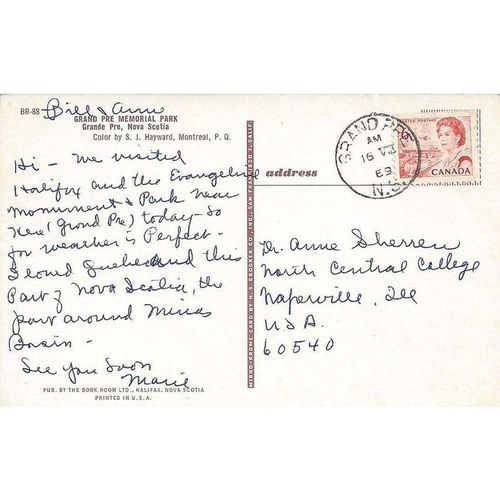 BR-88
Bill & Anne
GRAND PRE MEMORIAL PARK
Grande Pre, Nova Scotia
Color by S. J. Hayward, Montreal, P. Q.
Hi - We visited
Halifax and the Evangeline
Monument & Park near
here (Grand Pre) today - So
far weather is Perfect -
I loved Quebec and this
Part of Nova Scotia, the
part around Minas
Basin -
See you soon
Marie
PUB. BY THE BOOK ROOM LTD., HALIFAX, NOVA SCOTIA
PRINTED IN U.S.A.
MIRRO-KROME CARD BY H. S. CROCKER CO., INC., SAN FRANCISCO 1, CALIF.
address
GRAND PRE
AM
15 VII
69
N.S.
POSTES POSTAGE
CANADA
Dr. Anne Sherren
North Central College
Naperville, Ill
USA.
60540